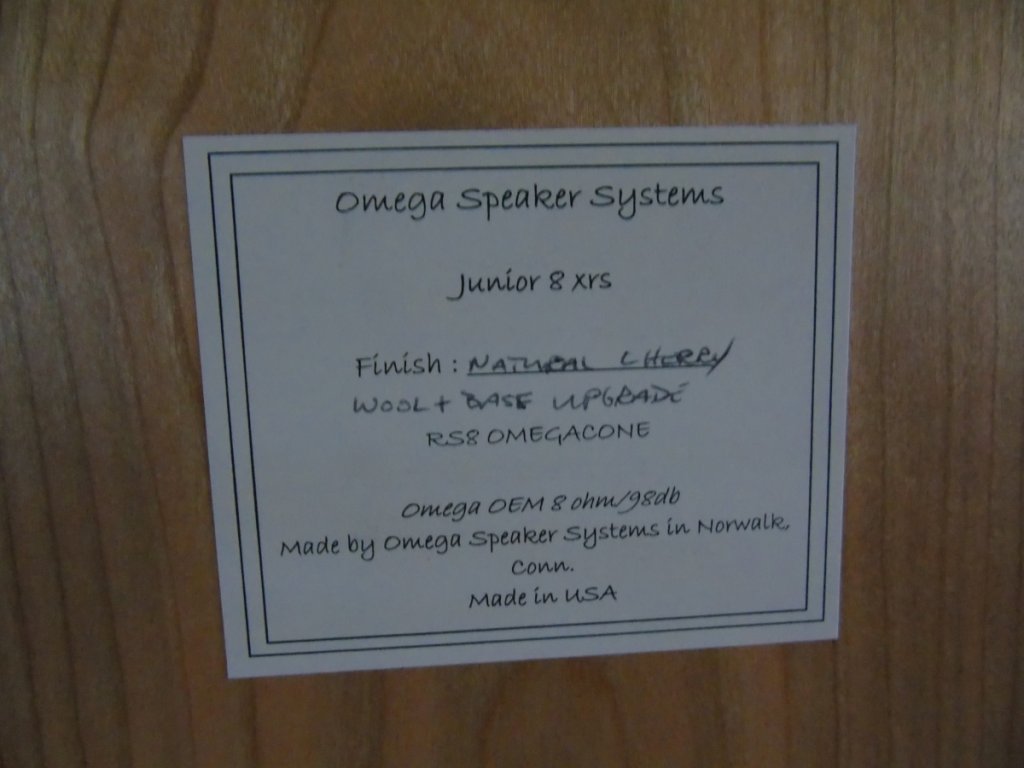 Omega Speaker Systems
Junior 8 xrs
Finish : NATURAL CHERRY
WOOL + BASE UPGRADE
RS8 OMEGACONE
Omega OEM 8 ohm/98db
Made by Omega Speaker Systems in Norwalk,
Conn.
Made in USA